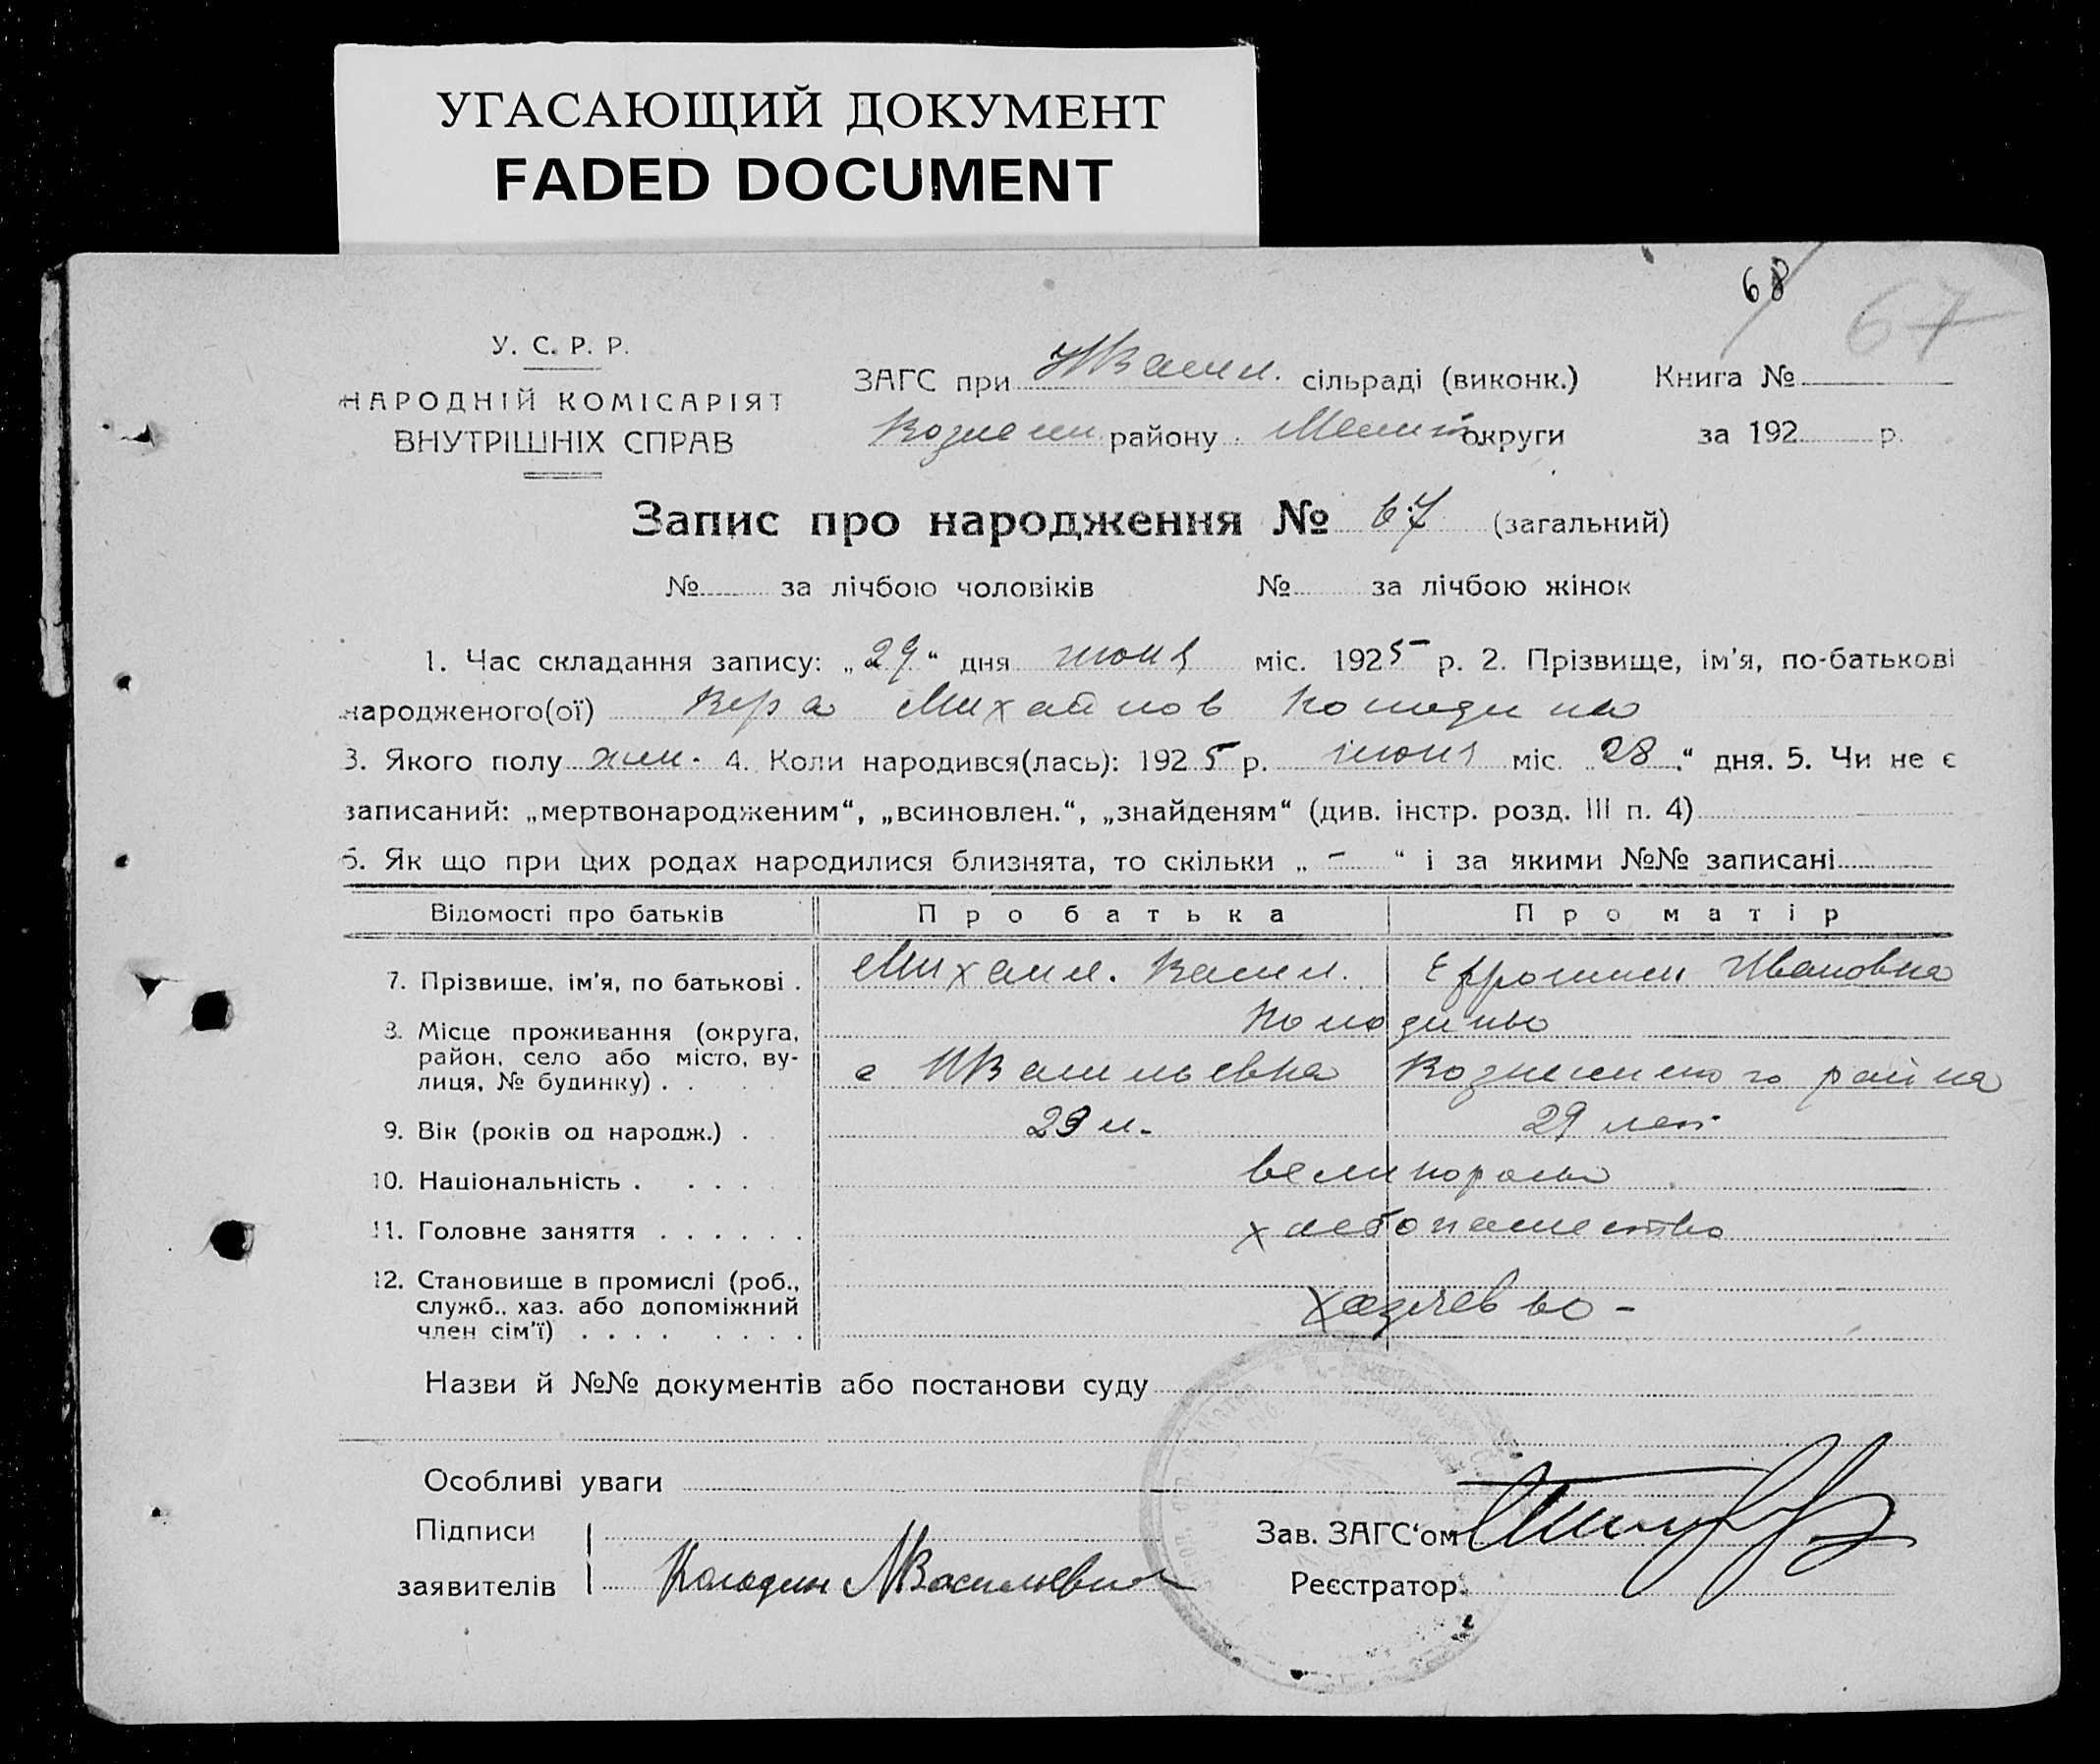 УГАСАЮЩИЙ ДОКУМЕНТ
FADED DOCUMENT
68
67
У. С. Р. Р.
НАРОДНІЙ КОМІСАРІЯТ
ВНУТРІШНІХ СПРАВ
ЗАГС при НВасил. сільраді (виконк.)
Книга №
Вознесен. району Мелит. округи
за 192 р.
Запис про народження № 67 (загальний)
№ за лічбою чоловіків № за лічбою жінок
1. Час складання запису: „29“ дня июня міс. 1925 р. 2. Прізвище, ім’я, по-батькові
народженого(ої) Вера Михайлов Колодина
3. Якого полу жен. 4. Коли народився(лась): 1925 р. июня міс. 28“ дня. 5. Чи не є
записаний: „мертвонародженим“, „всиновлен.“, „знайденям“ (див. інстр. розд. III п. 4)
6. Як що при цих родах народилися близнята, то скільки „ - “ і за якими №№ записані
Відомості про батьків Про батька Про матір
7. Прізвише, ім’я, по батькові . Михаил. Васил. Ефросиния Ивановна
Колодины
8. Місце проживання (округа, район, село або місто, ву-лиця, № будинку) . . с НВасильевка Вознесенского района
9. Вік (років од народж.) . 29 л. 29 лет
10. Національність . . . . великоросы
11. Головне заняття . . . . . . хлебопашество
12. Становище в промислі (роб., служб., хаз. або допоміжний член сім’ї) . . . . . . . .
Назви й №№ документів або постанови суду
Особливі уваги
Підписи
заявителів Колодин МВасильевич
Зав. ЗАГС‘ом
Реєстратор